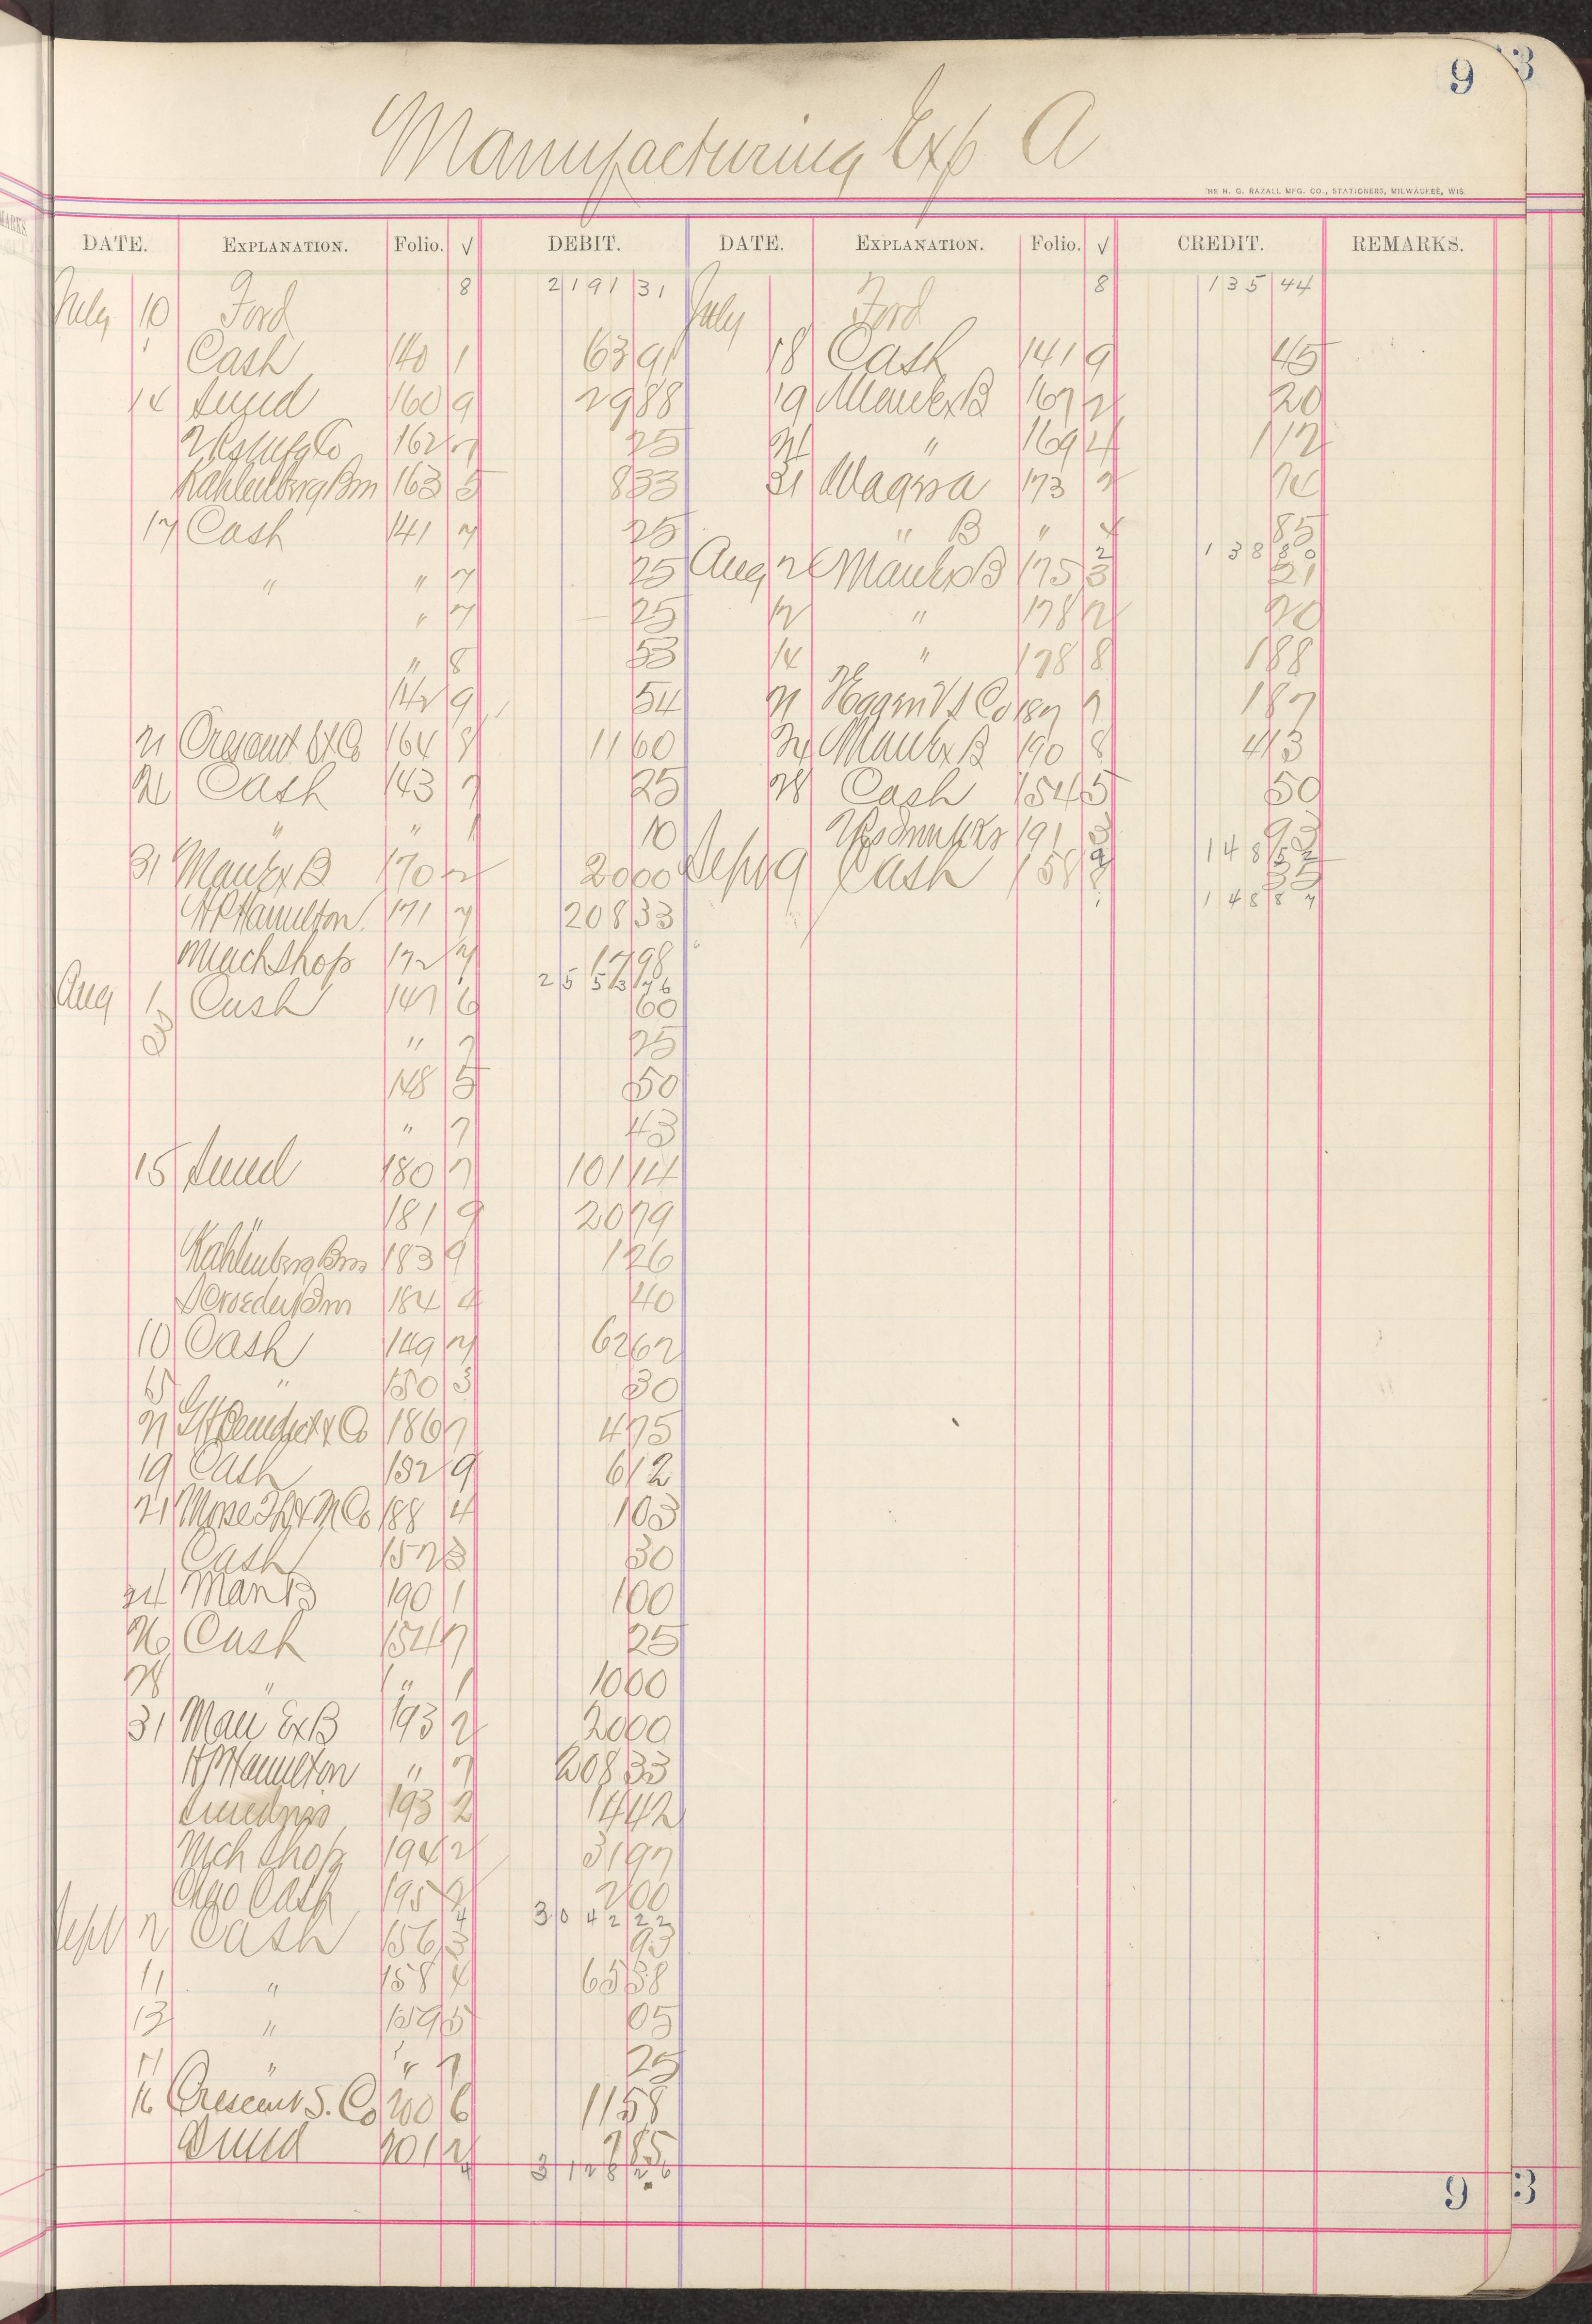 9
3
Manufacturing Exp A
THE H. G. RAZALL MFG. CO., STATIONERS, MILWAUKEE, WIS.
DATE. EXPLANATION. Folio. √ DEBIT. DATE. EXPLANATION. Folio. √ CREDIT. REMARKS.
July 10 Ford 8 2191 31 July Ford 8 135 44
" Cash 140 1 63 91 18 Cash 141 9 45
14 Sund 160 9 29 88 19 Man Ex B 167 2 20
162 7 25 21 " 169 4 1 12
Kahlenberg Bros 163 5 8 33 31 173 2
17 Cash 141 7 25 " B " 4 85
138 80
" " 7 25 Aug 2 Man Ex B 175 3 21
" 7 25 12 " 178 2 20
" 8 53 14 " 178 8 1 88
142 9 54 21 187 7 1 87
21 Crescent Co 164 8 11 60 24 Man Ex B 190 8 4 13
24 Cash 143 7 25 28 Cash 154 5 50
" " 1 10 191 3 93
148 52
31 Man Ex B 170 2 20 00 Sept 9 Cash 158 35
148 87
H P Hamilton 171 7 208 33
Mach Shop 172 7 17 98
2551 76
Aug 1 Cash 147 6 60
" 7 25
148 5 50
" 7 43
15 Sund 180 7 101 14
181 9 20 79
Kahlenberg Bros 183 9 1 26
184 4 40
10 Cash 149 7 62 62
15 " 150 3 30
21 Co 186 7 4 75
19 Cash 152 9 6 12
21 Morse Co 188 4 1 03
Cash 152 3 30
24 Man B 190 1 1 00
26 Cash 154 7 25
28 " " 1 10 00
31 Man Ex B 193 2 20 00
H P Hamilton " 7 208 33
193 2 14 42
Mch Shop 194 2 31 97
Cash 195 2 00
3042 22
Sept 2 Cash 156 3 93
11 " 158 4 65 38
13 " 159 5 05
" " 7 25
16 Crescent S. Co 200 6 11 58
Sund 201 2 7 85
3128 26
9
3